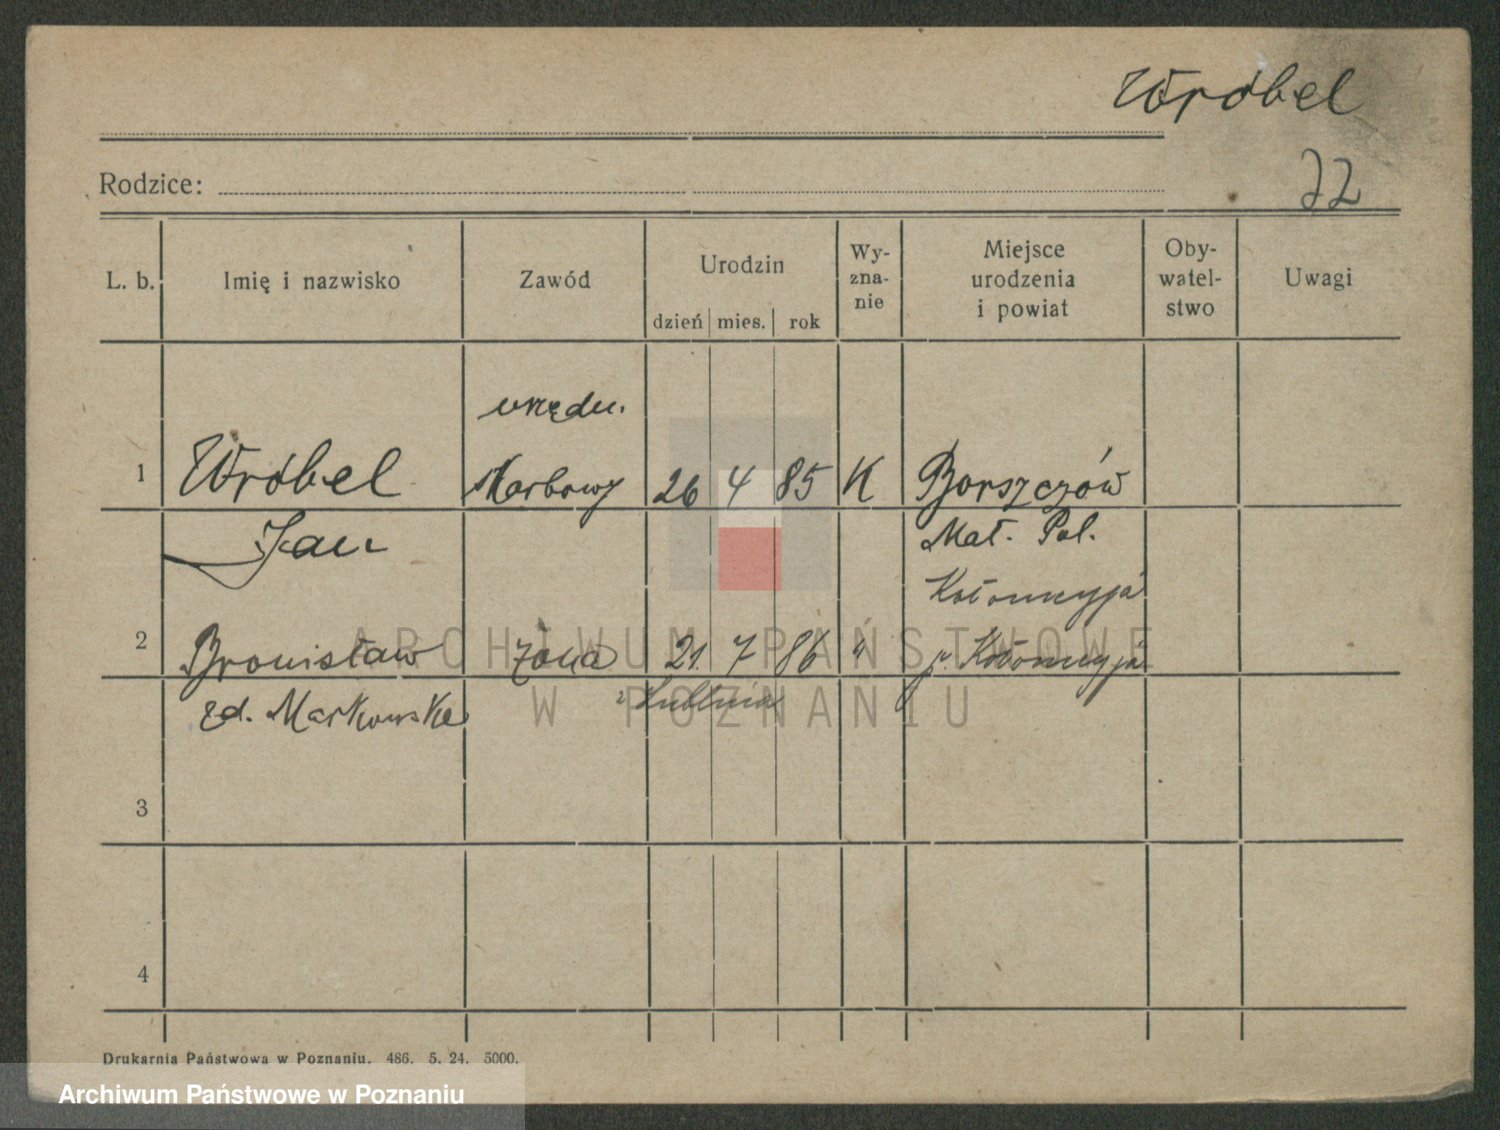 Wróbel
Rodzice:
72
L. b.
Imię i nazwisko
Zawód
Urodzin
dzień mies. rok
Wy-
zna-
nie
Miejsce
urodzenia
i powiat
Oby-
watel-
stwo
Uwagi
urzędn.
1 Wróbel skarbowy 26 4 85 K Borszczów
Jan Mał. Pol.
Kołomyja
2 Bronisław żona 21. 7 86 " p. Kołomyja
zd. Markowska z Lublina
3
4
Drukarnia Państwowa w Poznaniu. 486. 5. 24. 5000.
ARCHIWUM PAŃSTWOWE
W POZNANIU
Archiwum Państwowe w Poznaniu